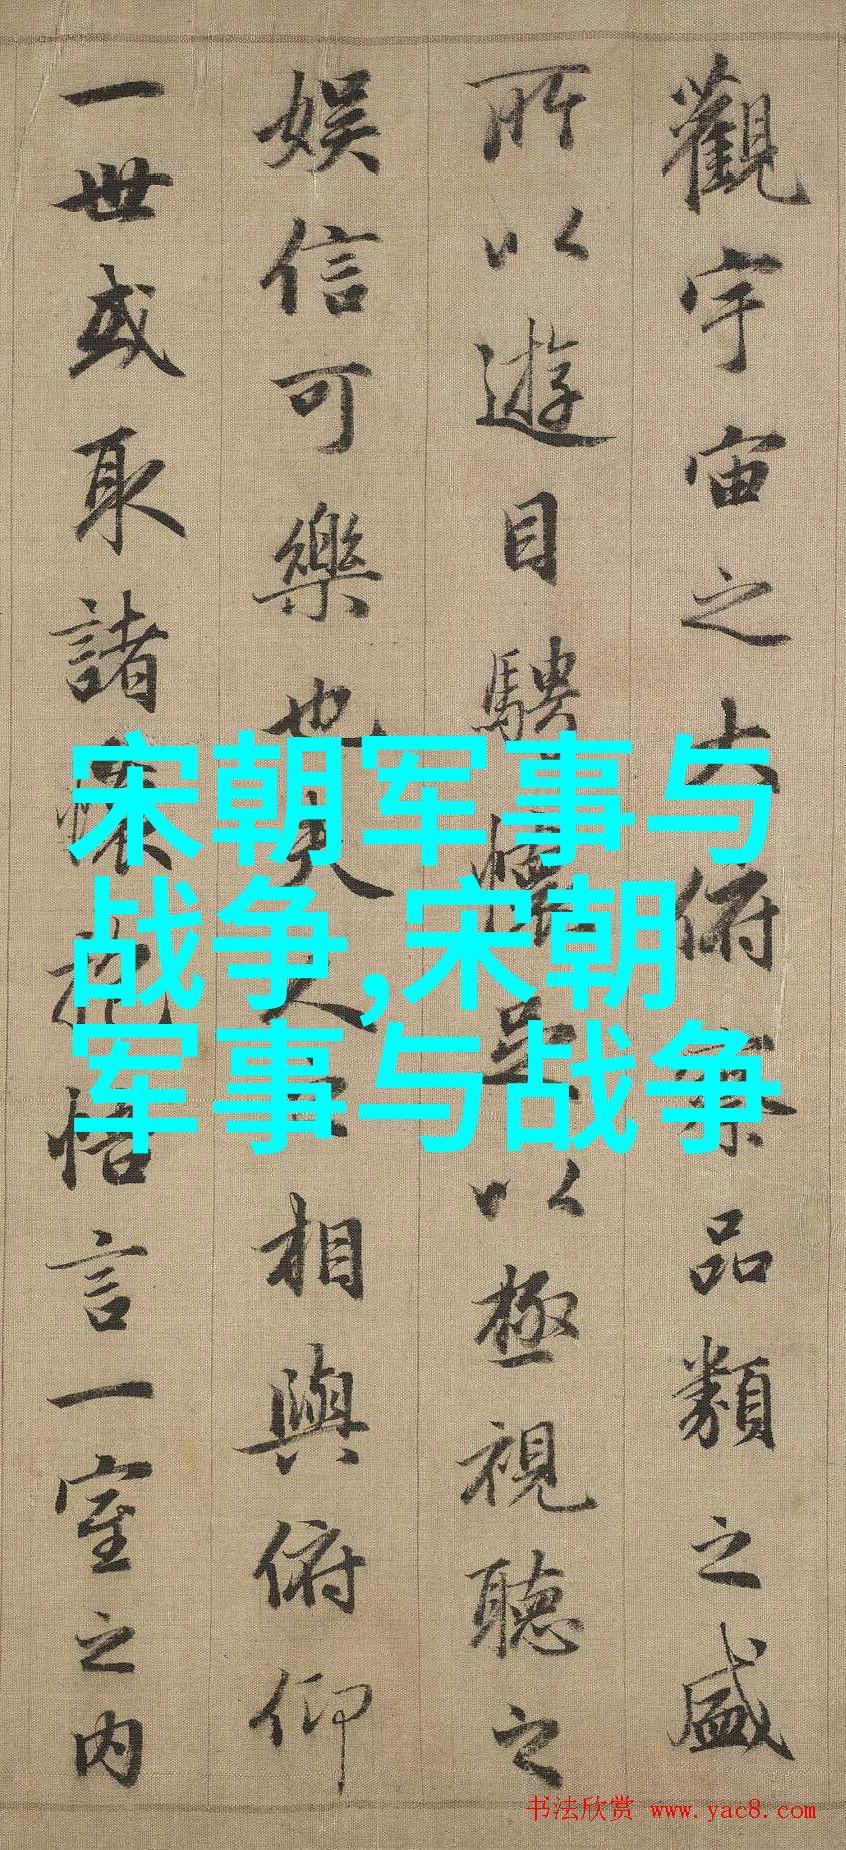 觀宇宙之大俯察品類之盛
所以遊目騁懷足以極視聽之
娛信可樂也夫人相與俯仰
一世或取諸懷抱悟言一室之内
宋朝军事与
战争,宋朝
军事与战争
书法欣赏 www.yac8.com